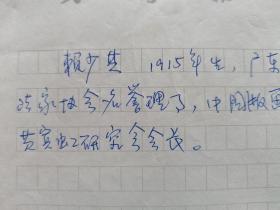 赖少其 1915年生，广东
法家协会名誉理事，中国版画
黄宾虹研究会会长。